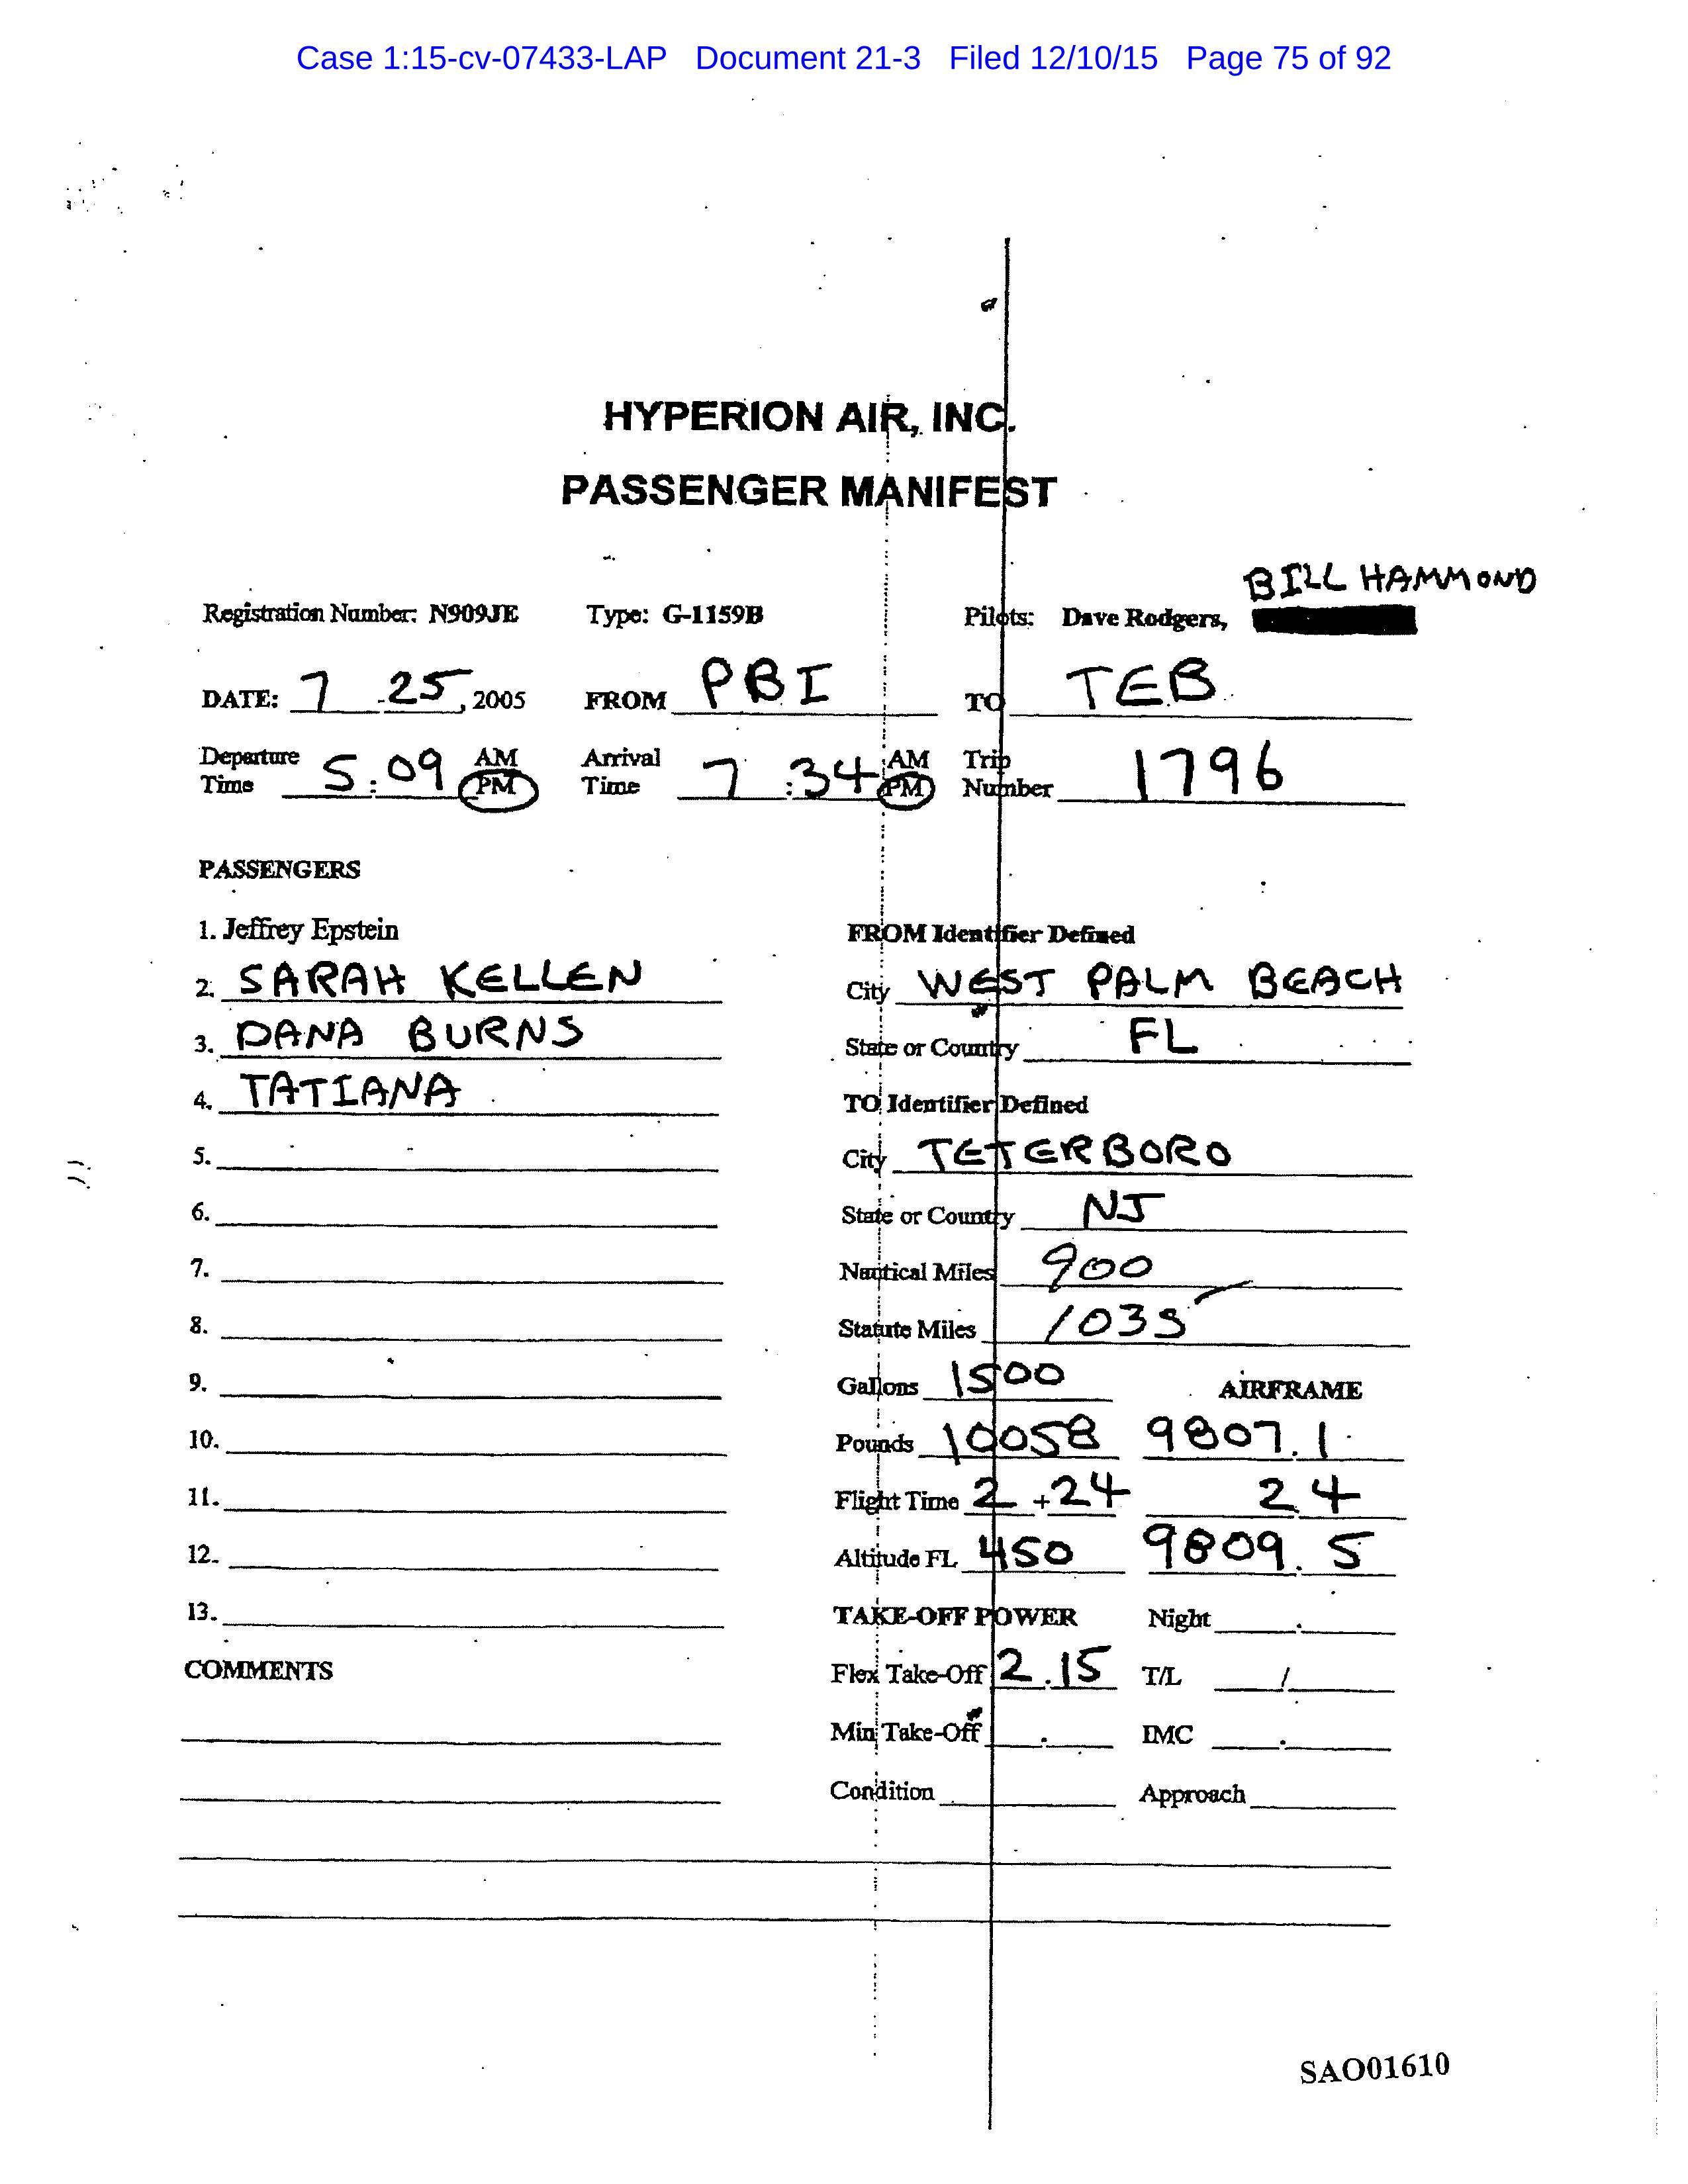 Case 1:15-cv-07433-LAP Document 21-3 Filed 12/10/15 Page 75 of 92
HYPERION AIR, INC.
PASSENGER MANIFEST
BILL HAMMOND
Registration Number: N909JE Type: G-1159B Pilots: Dave Rodgers,
DATE: 7 - 25, 2005 FROM PBI TO TEB
Departure Time 5:09 AM PM Arrival Time 7:34 AM PM Trip Number 1796
PASSENGERS
1. Jeffrey Epstein FROM Identifier Defined
2. SARAH KELLEN City WEST PALM BEACH
3. DANA BURNS State or Country FL
4. TATIANA TO Identifier Defined
5. City TETERBORO
6. State or Country NJ
7. Nautical Miles 900
8. Statute Miles 1035
9. Gallons 1500 AIRFRAME
10. Pounds 10058 9807.1
11. Flight Time 2 + 24 2.4
12. Altitude FL 450 9809.5
13. TAKE-OFF POWER Night .
COMMENTS Flex Take-Off 2.15 T/L /
Min Take-Off . IMC .
Condition Approach
SAO01610